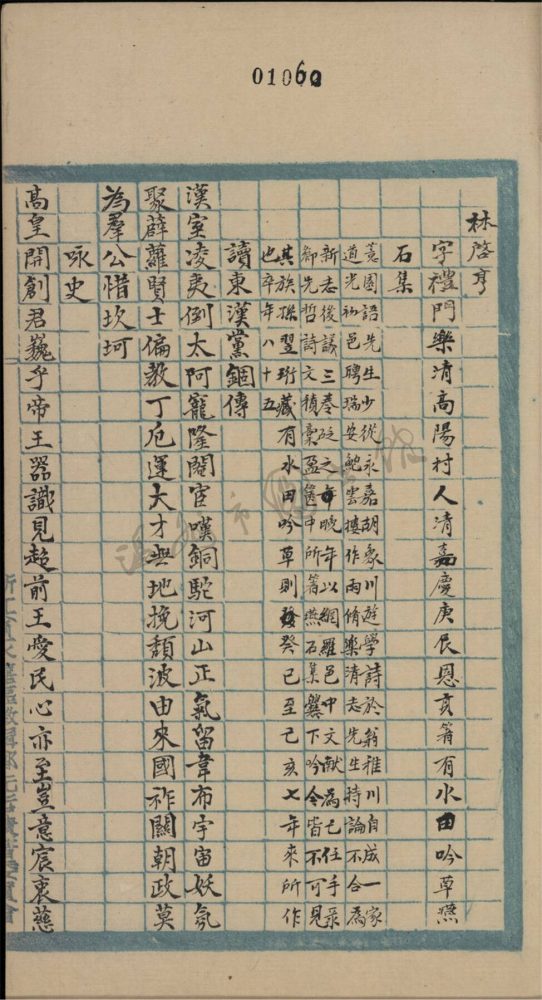 01060
林啓亨
字禮門樂清高陽村人清嘉慶庚辰恩亥箸有水田吟草燕
石集
蕙園語先生少從永嘉胡象川遊學詩於翁雅川自成一家
道光初邑聘瑞安鮑雲樓作雨脩樂清志先生時論不合為
新志後議三卷砭之晚年以網羅邑中文獻為己任手录
鄉先哲詩文積稾盈篋中所箸燕石集爨下吟今皆不可見
其族孫翌珩藏有水田吟草則癸巳至己亥七年來所作
也卒年八十五
讀東漢黨錮傳
漢室凌夷倒太阿寵隆閹宦嘆銅駝河山正氣留韋布宇宙妖氛
聚薜蘿賢士偏教丁厄運大才無地挽頹波由來國祚關朝政莫
為羣公惜坎坷
咏史
高皇開創君巍乎帝王器識見超前王愛民心亦至豈意宸衷慈